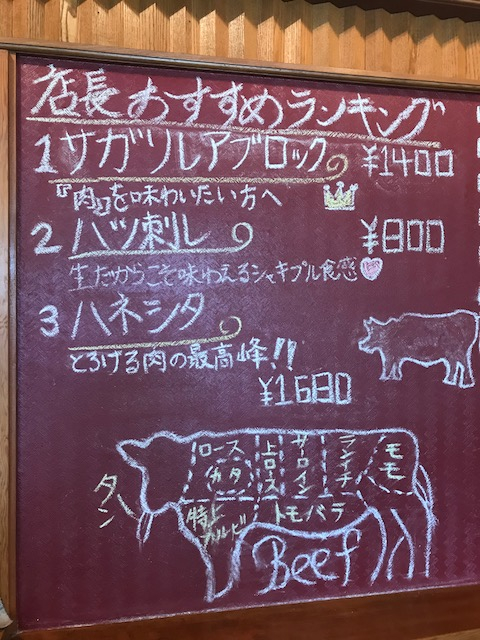 店長おすすめランキング
1 サガリレアブロック ¥1400
『肉』を味わいたい方へ
2 ハツ刺し ¥800
生だからこそ味わえるシャキプル食感
3 ハネシタ
とろける肉の最高峰!!
¥1680
ロース
カタ
上ロース
サーロイン
ランイチ
モモ
タン
特上カルビ
トモバラ
Beef